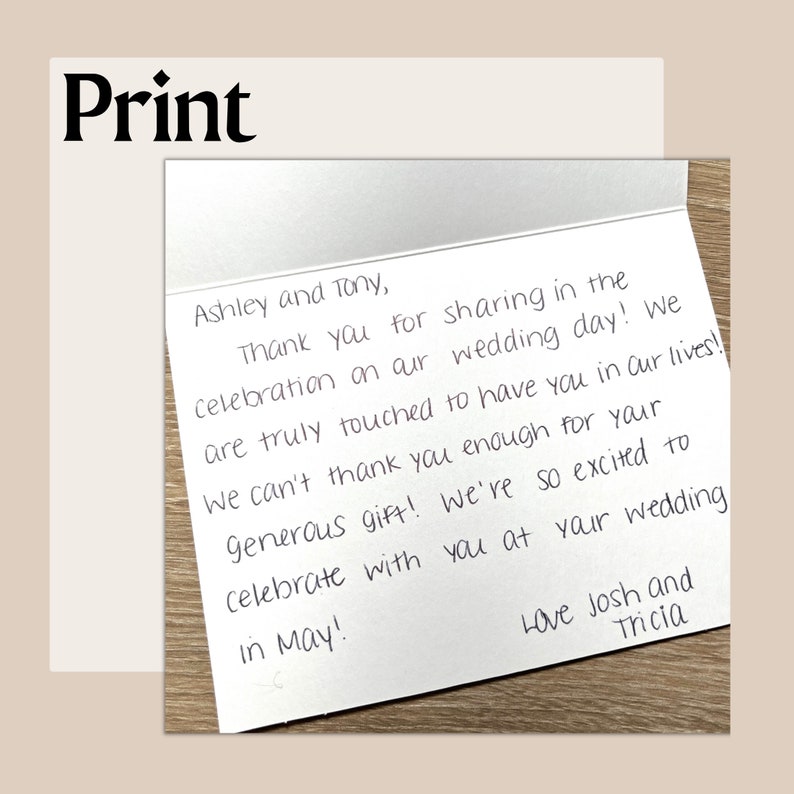 Print
Ashley and Tony,
Thank you for sharing in the
celebration on our wedding day! We
are truly touched to have you in our lives!
We can't thank you enough for your
generous gift! We're so excited to
celebrate with you at your wedding
in May!
Love Josh and
Tricia